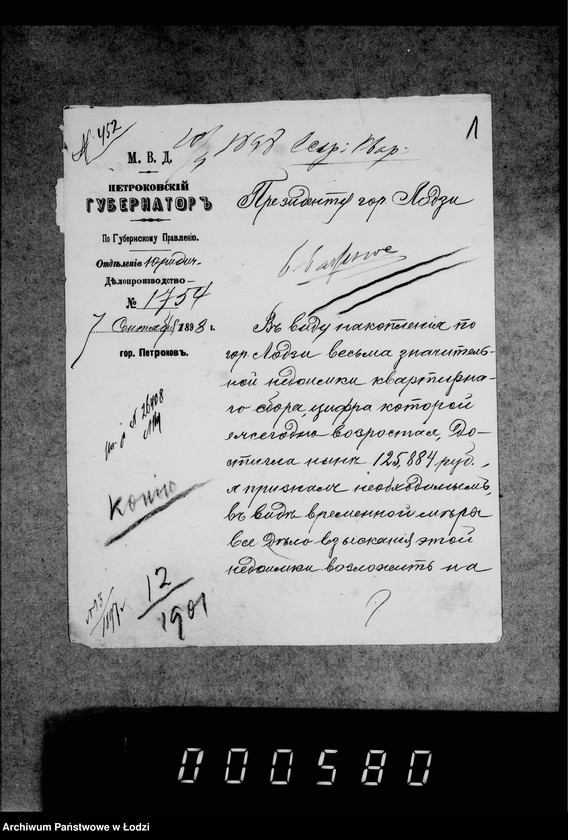 № 452
1
М. В. Д.
ПЕТРОКОВСКІЙ
ГУБЕРНАТОРЪ
По Губернскому Правленію.
Отдѣленіе Юридич.
Дѣлопроизводство
№ 1754
7 Сентября 1898 г.
гор. Петроковъ.
Президенту гор. Лодзи
Въ виду накопленія по
гор. Лодзи весьма значитель-
ной недоимки квартирна-
го сбора, цифра которой
ежегодно возростая, до-
стигла нынѣ 125,884 руб.,
я призналъ необходимымъ,
въ видѣ временной мѣры
все дѣло взысканія этой
недоимки возложить на
№ 26808
Копію
12
1901
000580
Archiwum Państwowe w Łodzi